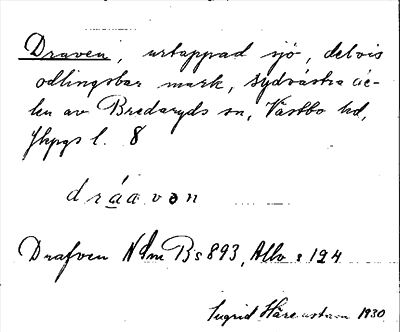 Draven, urtappad sjö, delvis
odlingsbar mark, sydvästra de-
len av Bredaryds sn, Västbo hd,
Jkpgs l. 8
dráavən
Drafven NSm Bs 893, Allv s 194
Ingrid 1930